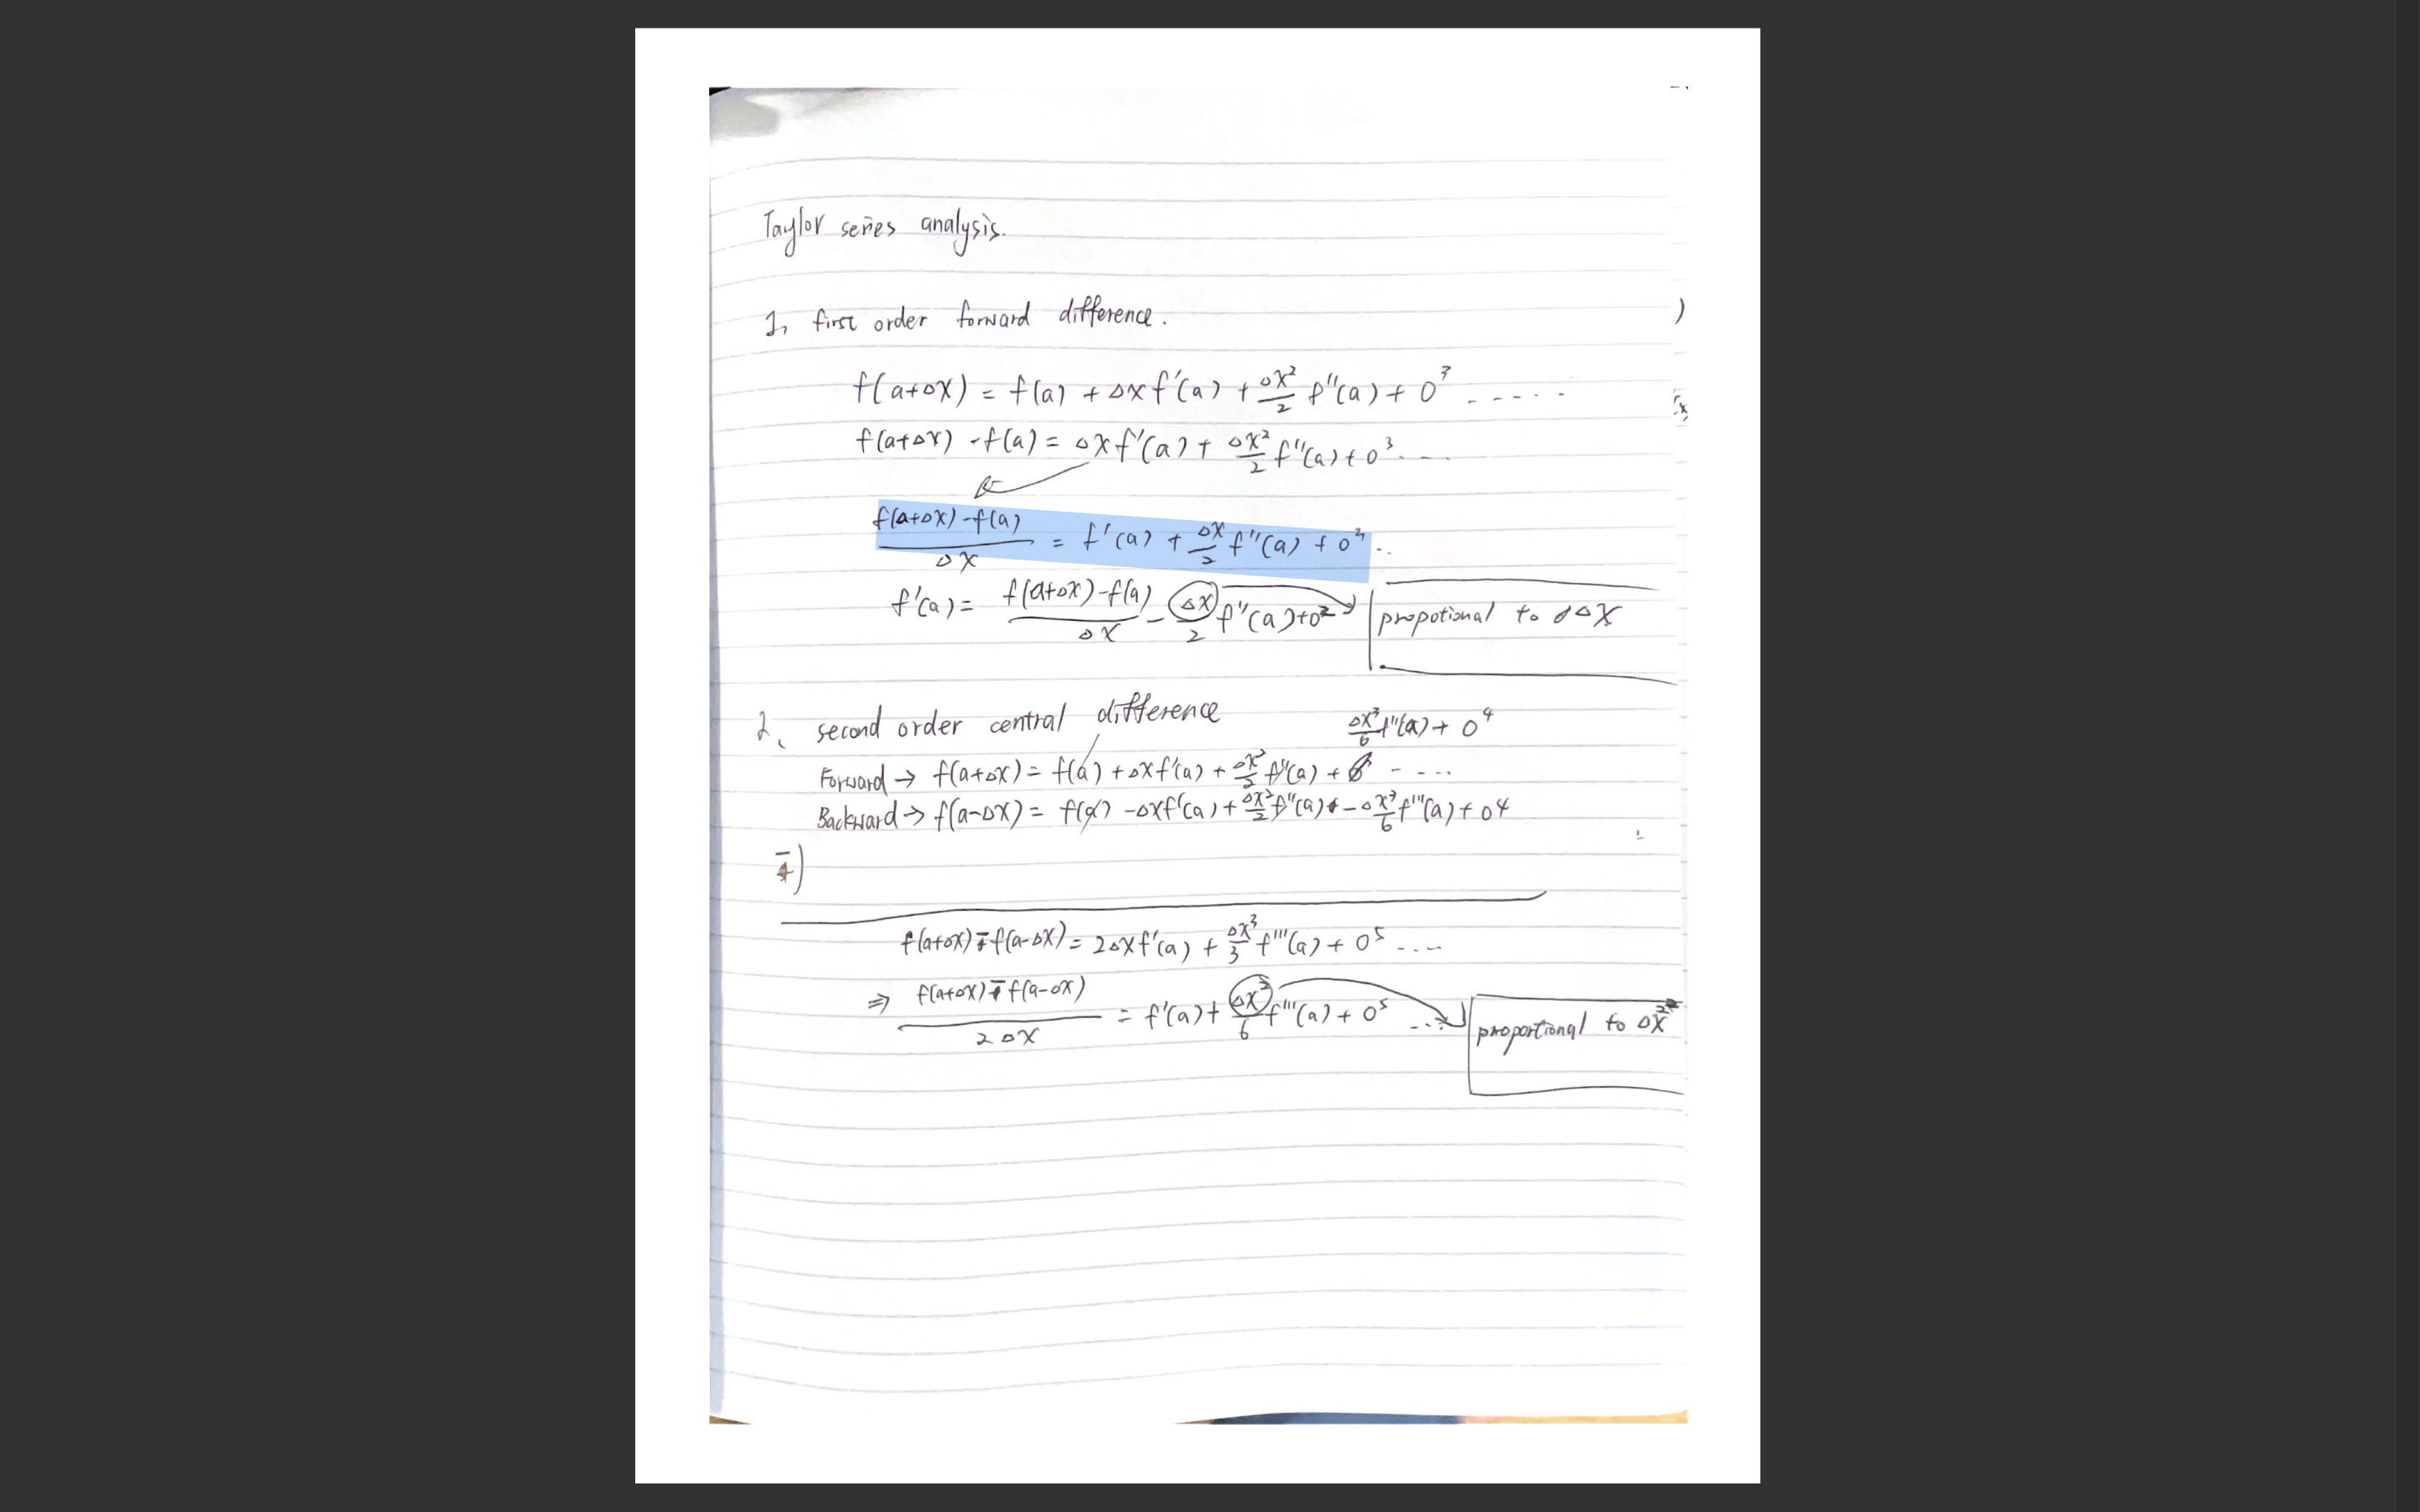 Taylor series analysis.
1, first order forward difference.
f(a+Δx) = f(a) + Δx f'(a) + Δx²/2 f''(a) + 0³ .....
f(a+Δx) - f(a) = Δx f'(a) + Δx²/2 f''(a) + 0³ ....
f(a+Δx) - f(a) / Δx = f'(a) + Δx/2 f''(a) + 0² ..
f'(a) = f(a+Δx) - f(a) / Δx - Δx/2 f''(a) + 0² propotional to Δx
2、 second order central difference
Δx³/6 f''(a) + 0⁴
Forward → f(a+Δx) = f(a) + Δx f'(a) + Δx²/2 f''(a) + - ....
Backward → f(a-Δx) = f(a) - Δx f'(a) + Δx²/2 f''(a) - Δx³/6 f'''(a) + 0⁴
-)
f(a+Δx) - f(a-Δx) = 2Δx f'(a) + Δx³/3 f'''(a) + 0⁵ ....
⇒ f(a+Δx) - f(a-Δx) / 2Δx = f'(a) + Δx²/6 f'''(a) + 0⁵ ... proportional to Δx²